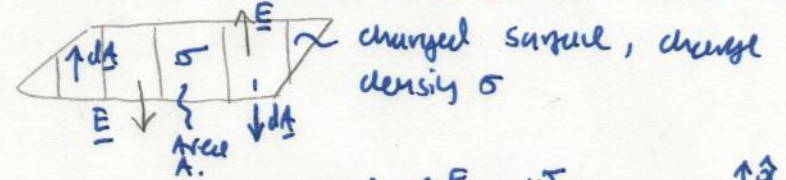 E
dA σ charged surface, charge
density σ
E dA
Area
A.